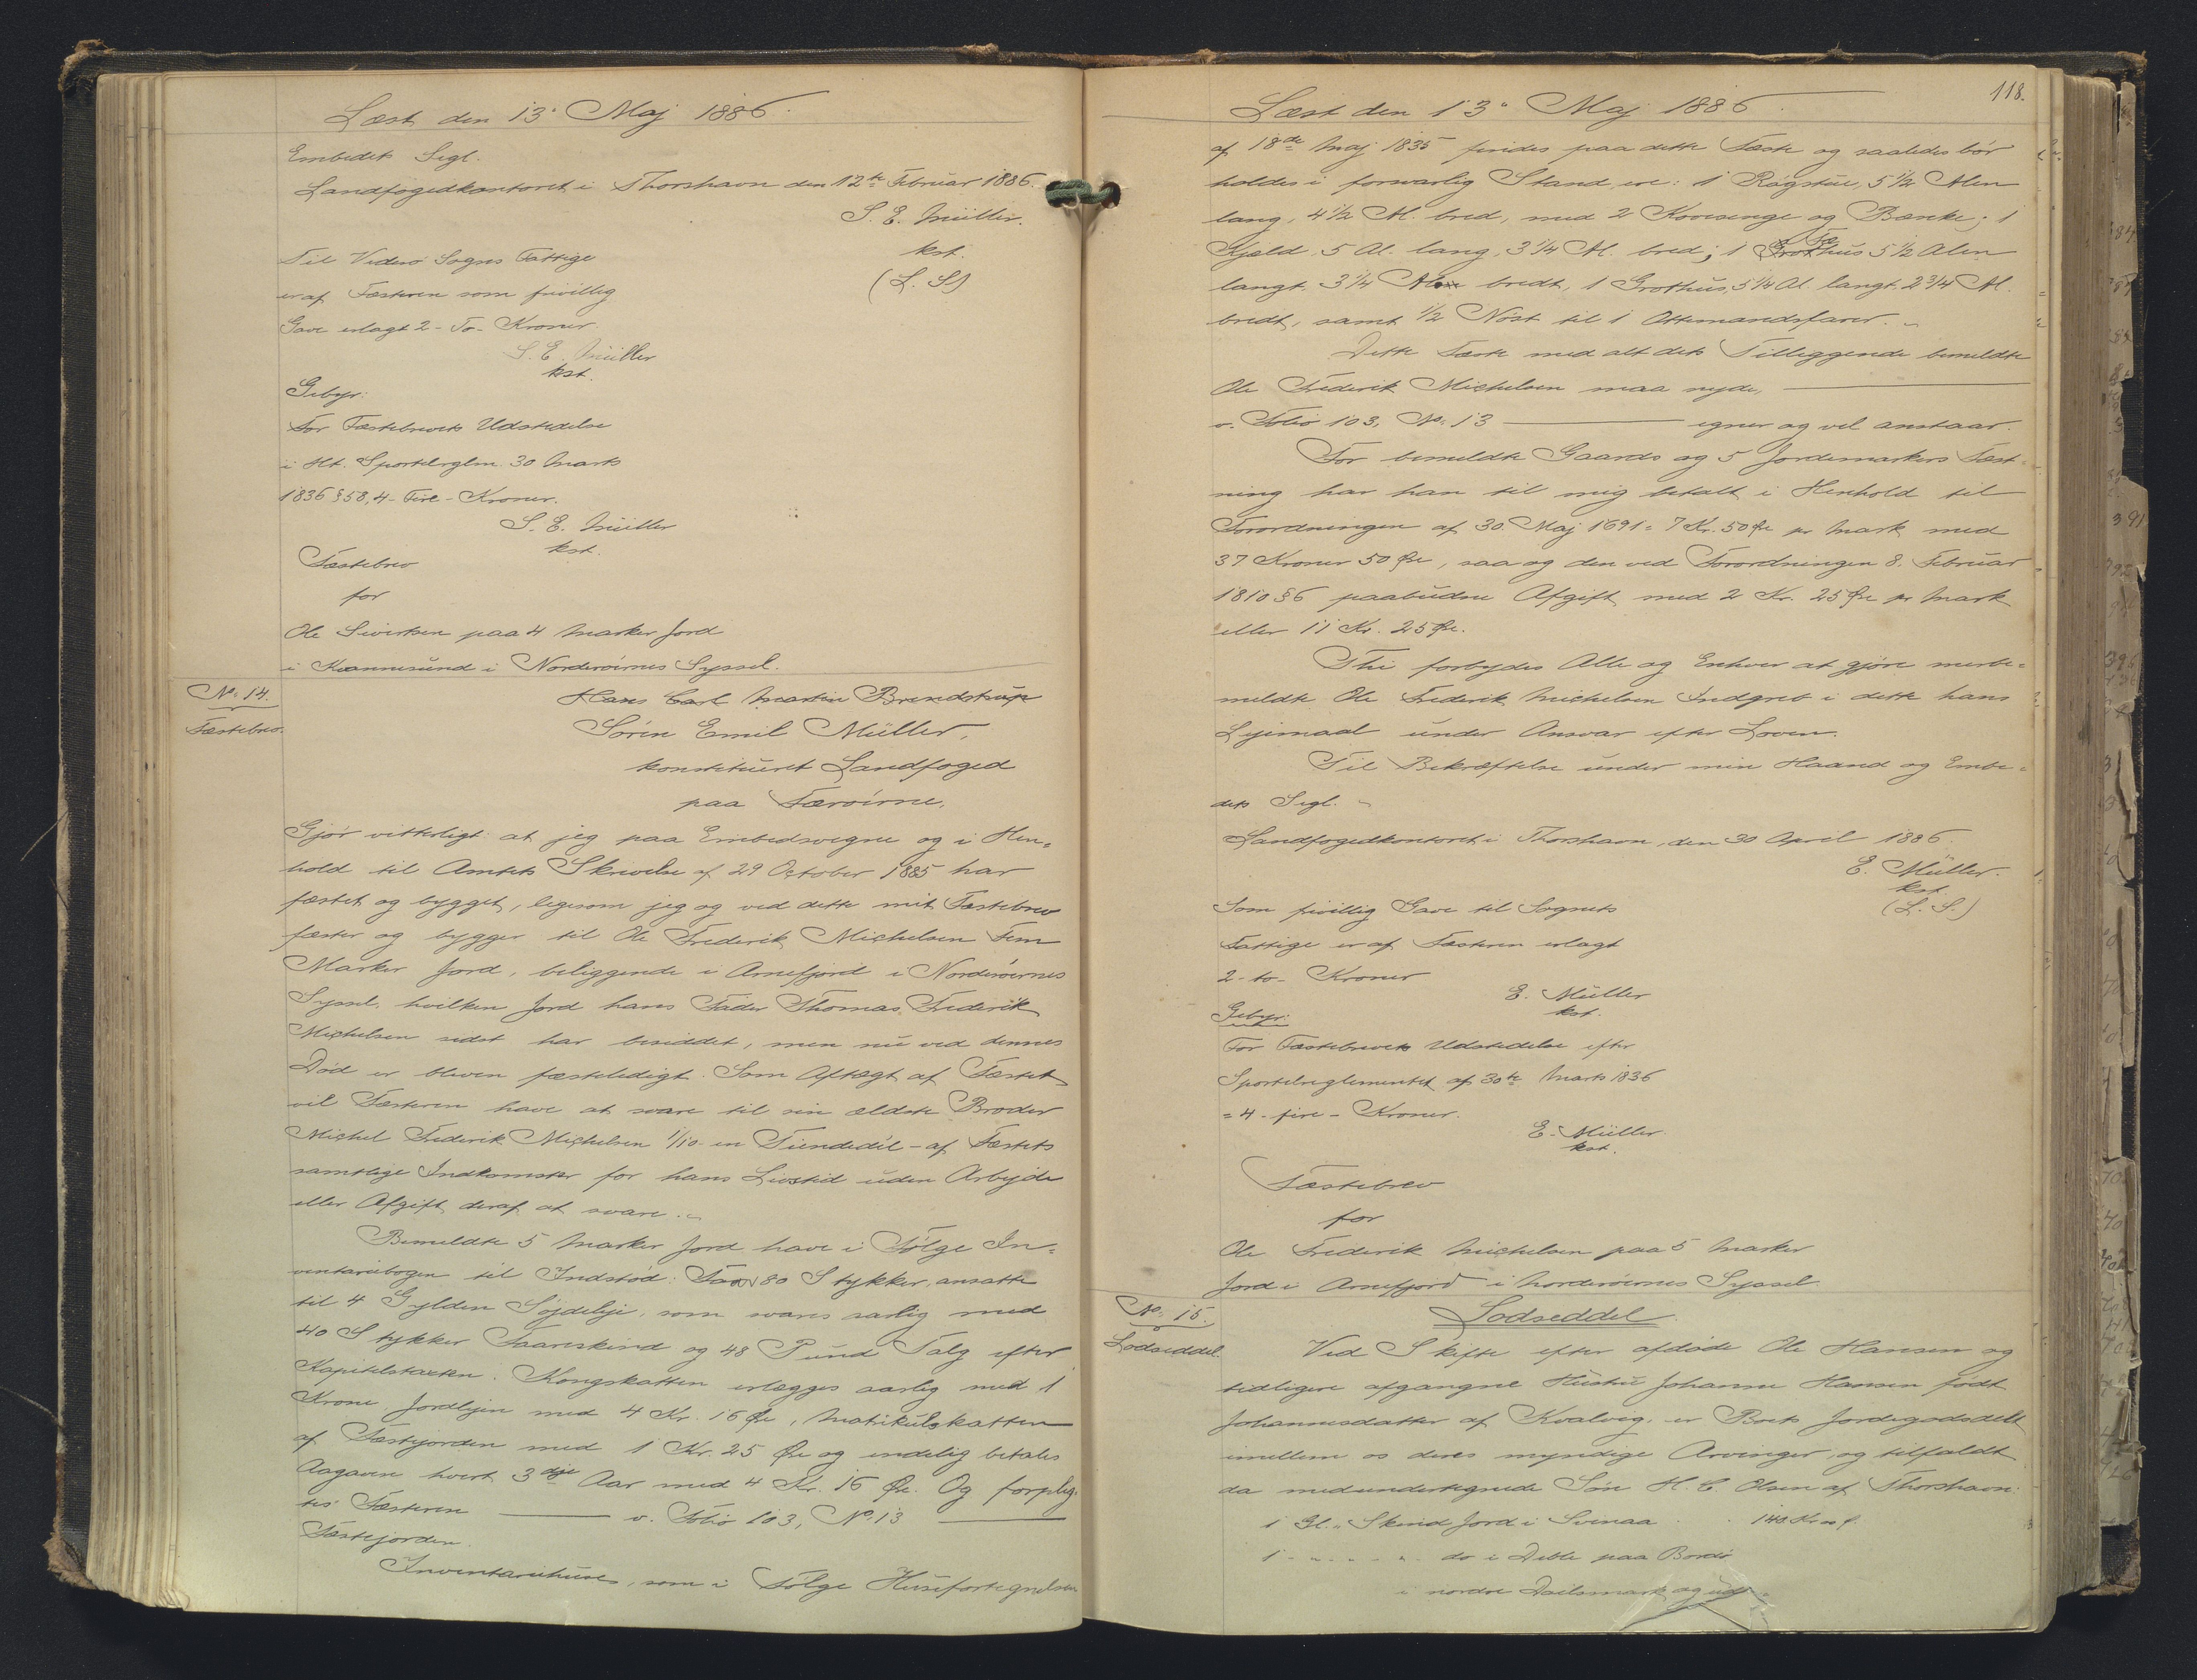 Læst den 13' Maj 1886.
Embedets Segl.
Landfogedkontoret i Thorshavn den 12te Februar 1886.
S. E. Müller.
kst.
(L. S)
Til Viderø Sogns Fattige
er af Fæsteren som frivillig
Gave erlagt 2 - To - Kroner.
S. E. Müller
kst.
Gebyr:
For Fæstebrevets Udstedelse
i Ht. Sportelrglm. 30 Marts
1836 § 58, 4 - Fire - Kroner.
S. E. Müller
kst.
Fæstebrev
for
Ole Sivertsen paa 4 Marker Jord
i Kvannesund i Norderøernes Syssel.
No. 14.
Fæstebrev.
Hans Carl Martin Brendstrup
Søren Emil Müller,
konstitueret Landfoged
paa Færøerne,
Gjør vitterligt: at jeg paa Embedsvegne og i Hen-
hold til Amtets Skrivelse af 29 October 1885 har
fæstet og bygget, ligesom jeg og ved dette mit Fæstebrev
fæster og bygger til Ole Frederik Michelsen Fem
Marker Jord, beliggende i Arnefjord i Norderøernes
Syssel, hvilken Jord hans Fader Thomas Frederik
Michelsen sidst har besiddet, men nu ved dennes
Død er bleven fæsteledigt. Som Aftægt af Fæstet
vil Fæsteren have at svare til sin ældste Broder
Michel Frederik Michelsen 1/10 - en Tiendedel - af Fæstets
samtlige Indkomster for hans Livstid uden Arbejde
eller Afgift deraf at svare.
Bemeldte 5 Marker Jord have i Følge In-
ventariebogen til Indstød: Faar 80 Stykker, ansatte
til 4 Gylden Søjdeleje, som svares aarlig med
40 Stykker Faareskind og 48 Pund Talg efter
Kapitelstaxten. Kongskatten erlægges aarlig med 1
Krone, Jordlejen med 4 Kr. 16 Øre, Matrikulskatten
af Fæstejorden med 1 Kr. 25 Øre og endelig betales
Aagaven hvert 3die Aar med 4 Kr. 16 Øre. Og forplig-
tes Fæsteren ——— v. Folio 103, No. 13 ———
Fæstejorden.
Inventariehuse, som i Følge Husefortegnelsen
118.
Læst den 13' Maj 1886.
af 18de Maj 1835 findes paa dette Fæste og saaledes bør
holdes i forsvarlig Stand, ere: 1 Røgstue, 5 1/2 Alen
lang, 4 1/2 Al. bred, med 2 Kovesenge og Bænke; 1
Kjæld, 5 Al. lang, 3 1/4 Al. bred; 1 Fæhus 5 1/2 Alen
langt, 3 1/4 Alen bredt, 1 Grothus, 5 1/4 Al. langt, 2 3/4 Al.
bredt, samt 1/2 Nøst til 1 Ottemandsfarer.
Dette Fæste med alt dets Tilliggende bemeldte
Ole Frederik Michelsen maa nyde, ———
v. Folio 103, No. 13 ——— egner og vel anstaar.
For bemeldte Gaards og 5 Jordemarkers Fæst-
ning har han til mig betalt i Henhold til
Forordningen af 30. Maj 1691 = 7 Kr. 50 Øre pr Mark med
37 Kroner 50 Øre, saa og den ved Forordningen 8. Februar
1810 § 6 paabudne Afgift med 2 Kr. 25 Øre pr Mark
eller 11 Kr. 25 Øre.
Thi forbydes Alle og Enhver at gjøre merbe-
meldte Ole Frederik Michelsen Indgreb i dette hans
Lejemaal under Ansvar efter Loven.
Til Bekræftelse under min Haand og Embe-
dets Segl.
Landfogedkontoret i Thorshavn, den 30 April 1886.
E. Müller.
kst.
(L. S.)
Som frivillig Gave til Sognets
Fattige er af Fæsteren erlagt
2 - to - Kroner
E. Müller
kst.
Gebyr:
For Fæstebrevets Udstedelse efter
Sportelreglementet af 30te Marts 1836
= 4 - fire - Kroner.
E. Müller
kst.
Fæstebrev
for
Ole Frederik Michelsen paa 5 Marker
Jord i Arnefjord i Norderøernes Syssel.
No. 15.
Lodseddel.
Lodseddel
Ved Skifte efter afdøde Ole Hansen og
tidligere afgangne Hustru Johanne Hansen født
Johannesdatter af Kvalvig, er Boets Jordegods delt
imellem os deres myndige Arvinger, og tilfaldt
da medundertegnede Søn H. C. Olsen af Thorshavn:
1 Gl. " Skind Jord i Svinaa . . 140 Kr.
1 - " - " - " do i Deble paa Bordø
i nordre Doelsmark og ud-